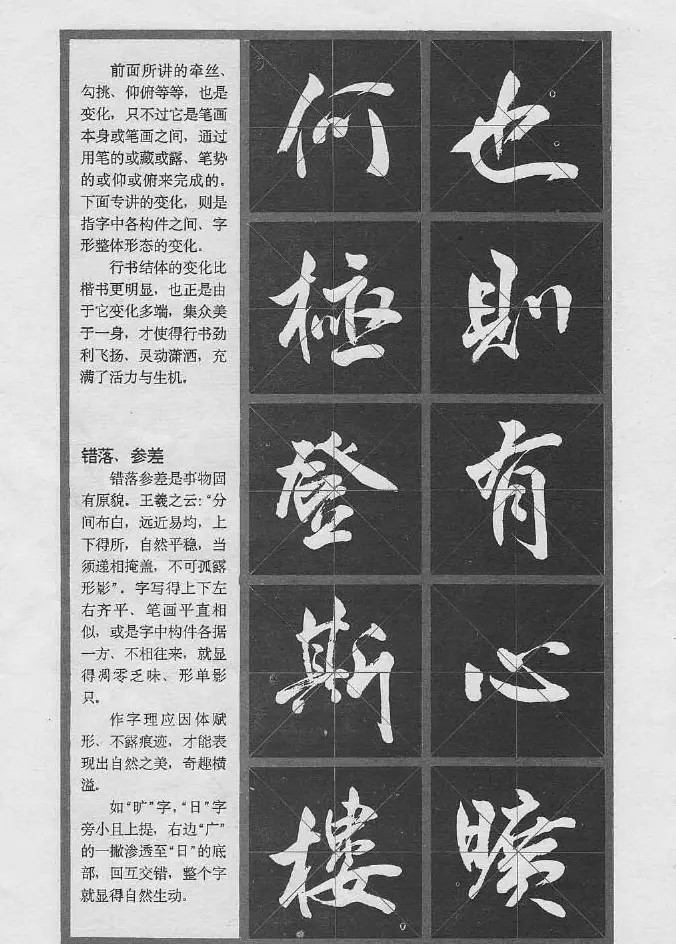 前面所讲的牵丝、
勾挑、仰俯等等，也是
变化，只不过它是笔画
本身或笔画之间，通过
用笔的或藏或露、笔势
的或仰或俯来完成的。
下面专讲的变化，则是
指字中各构件之间、字
形整体形态的变化。
行书结体的变化比
楷书更明显，也正是由
于它变化多端，集众美
于一身，才使得行书劲
利飞扬、灵动潇洒，充
满了活力与生机。
错落、参差
错落参差是事物固
有原貌。王羲之云：“分
间布白，远近易均，上
下得所，自然平稳，当
须递相掩盖，不可孤露
形影”。字写得上下左
右齐平、笔画平直相
似，或是字中构件各据
一方、不相往来，就显
得凋零乏味、形单影
只。
作字理应因体赋
形、不露痕迹，才能表
现出自然之美，奇趣横
溢。
如“旷”字，“日”字
旁小且上提，右边“广”
的一撇渗透至“日”的底
部，回互交错，整个字
就显得自然生动。
也則有心曠
何極登斯樓